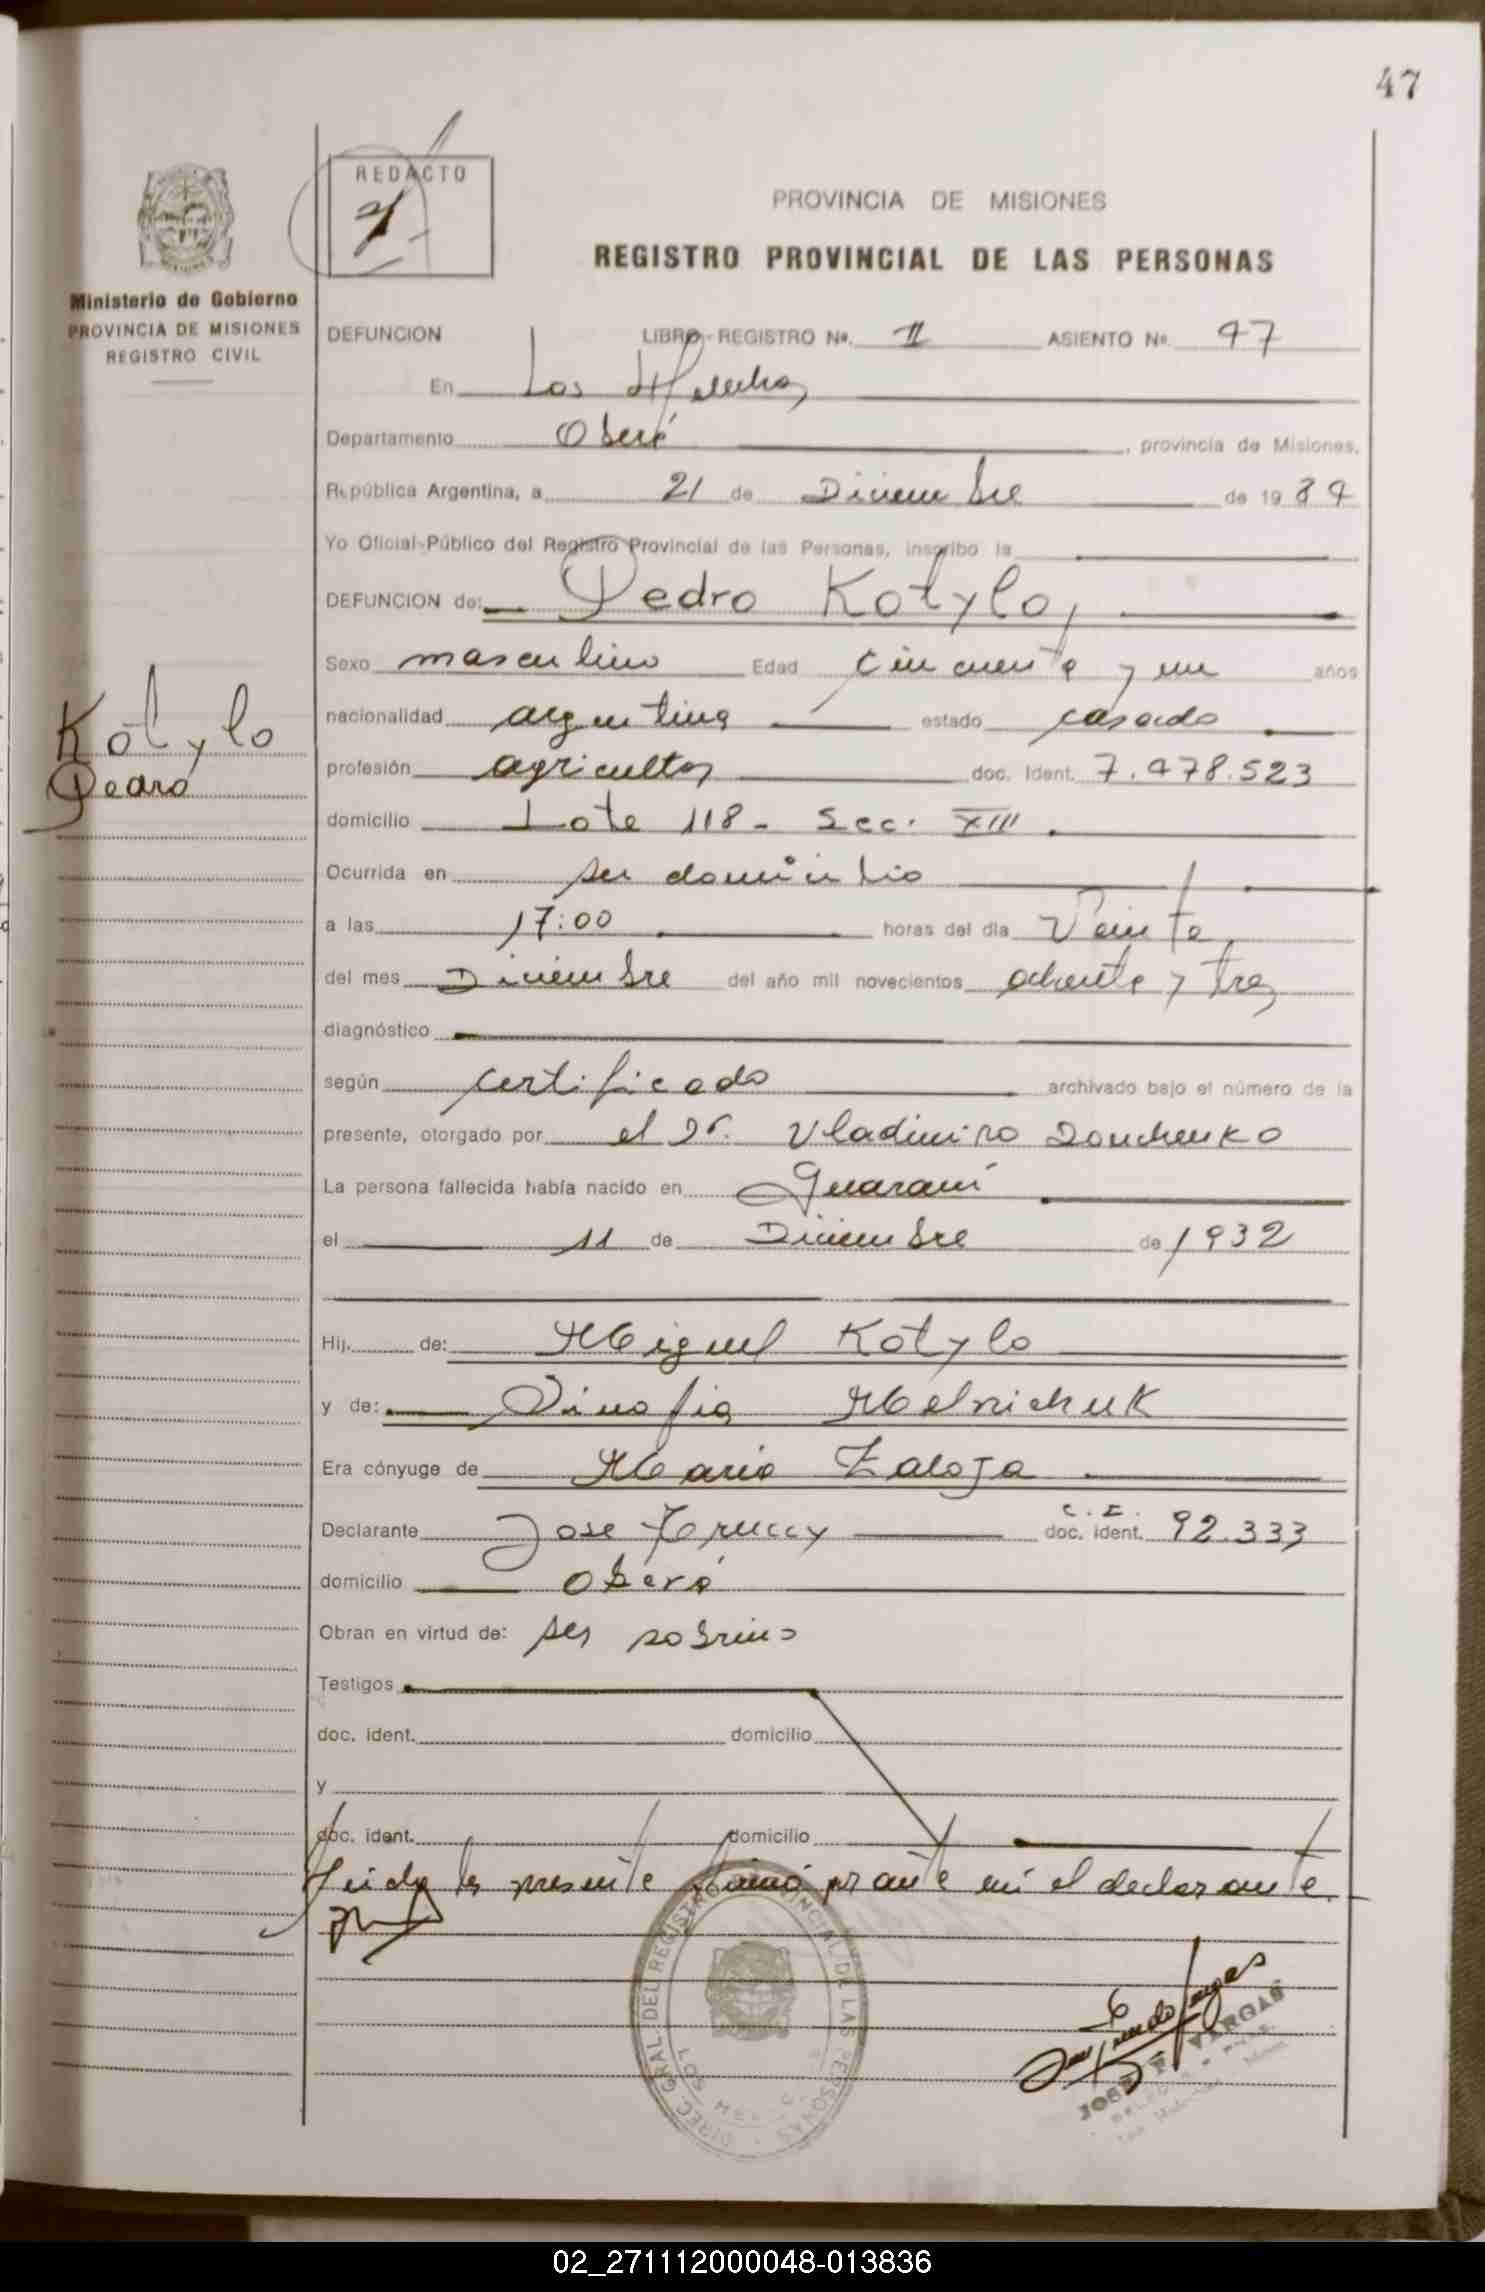 47
REDACTO
PROVINCIA DE MISIONES
REGISTRO PROVINCIAL DE LAS PERSONAS
Ministerio de Gobierno
PROVINCIA DE MISIONES
REGISTRO CIVIL
DEFUNCION LIBRO-REGISTRO Nº. II ASIENTO Nº. 47
En Los Helechos
Departamento Oberá, provincia de Misiones,
República Argentina, a 21 de Diciembre de 1984
Yo Oficial Público del Registro Provincial de las Personas, inscribo la
DEFUNCION de: Pedro Kotylo,
Kotylo
Pedro
Sexo masculino Edad cincuenta y un años
nacionalidad argentina estado casado
profesión agricultor doc. Ident. 7.478.523
domicilio Lote 118 - Sec. XIII.
Ocurrida en su domicilio
a las 17:00 horas del día Veinte
del mes Diciembre del año mil novecientos ochenta y tres
diagnóstico
según certificado archivado bajo el número de la
presente, otorgado por el Dr. Vladimiro Douchenko
La persona fallecida había nacido en Guaraní
el 11 de Diciembre de 1932
Hij. de: Miguel Kotylo
y de: Sinofia Melnichuk
Era cónyuge de Maria Zaloza
Declarante Jose C.I. doc. ident. 92.333
domicilio Oberá
Obran en virtud de: ser sobrino
Testigos
doc. ident. domicilio
y
doc. ident. domicilio
Leida la presente firmó por ante mi el declarante.
DIREC. GRAL. DEL REGISTRO PROVINCIAL DE LAS PERSONAS
JOSE F. VARGAS
02_271112000048-013836